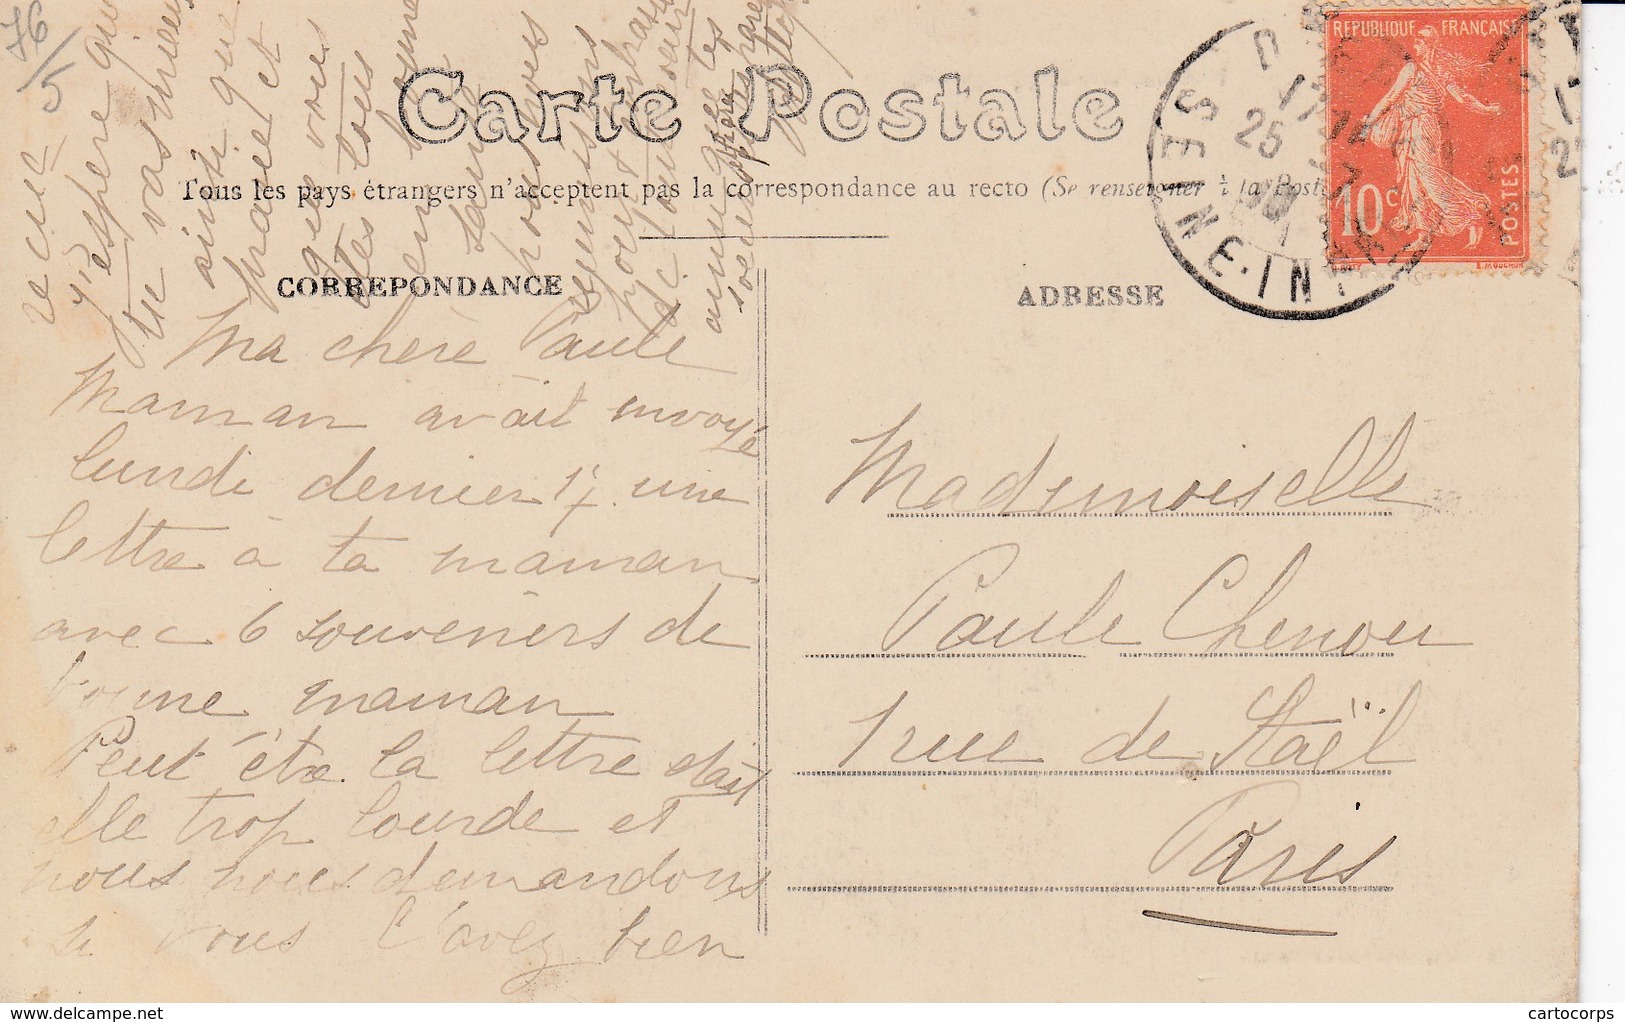 76/5
Carte Postale
Tous les pays étrangers n'acceptent pas la correspondance au recto (Se renseigner à la Poste
CORREPONDANCE
ADRESSE
REPUBLIQUE FRANÇAISE
10c
POSTES
E. MOUCHON
25
SEINE-INF
Ma chère Paule
Maman avait envoyé
lundi dernier 17 une
lettre à ta maman
avec 6 souvenirs de
bonne maman
Peut être la lettre était
elle trop lourde et
nous nous demandons
si vous l'avez bien
recue
J'espère que
tu vas mieux
ainsi que
et
que vous
êtes tous
en bonne
santé
ainsi que tes
Mademoiselle
Paule Chenou
1 rue de Staël
Paris
delcampe.net
cartocorps